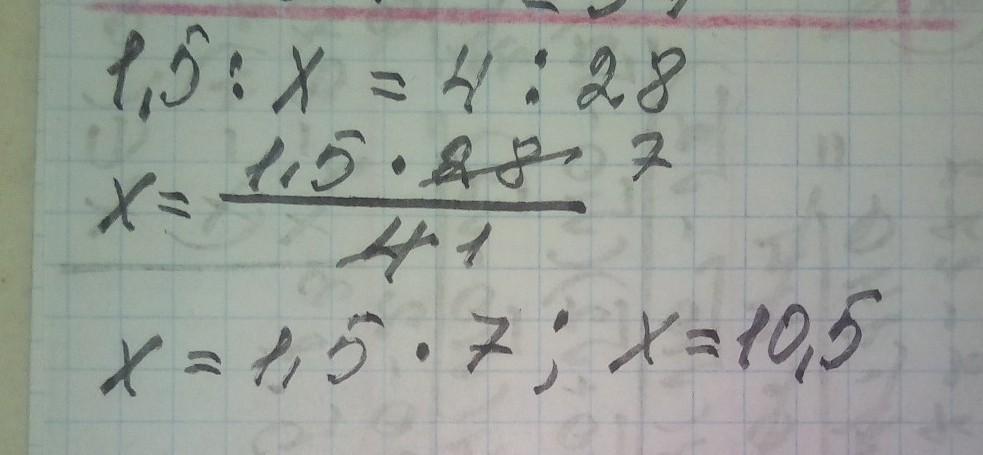 1,5 : x = 4 : 28
x = 1,5 · 28 7
4 1
x = 1,5 · 7 ; x = 10,5